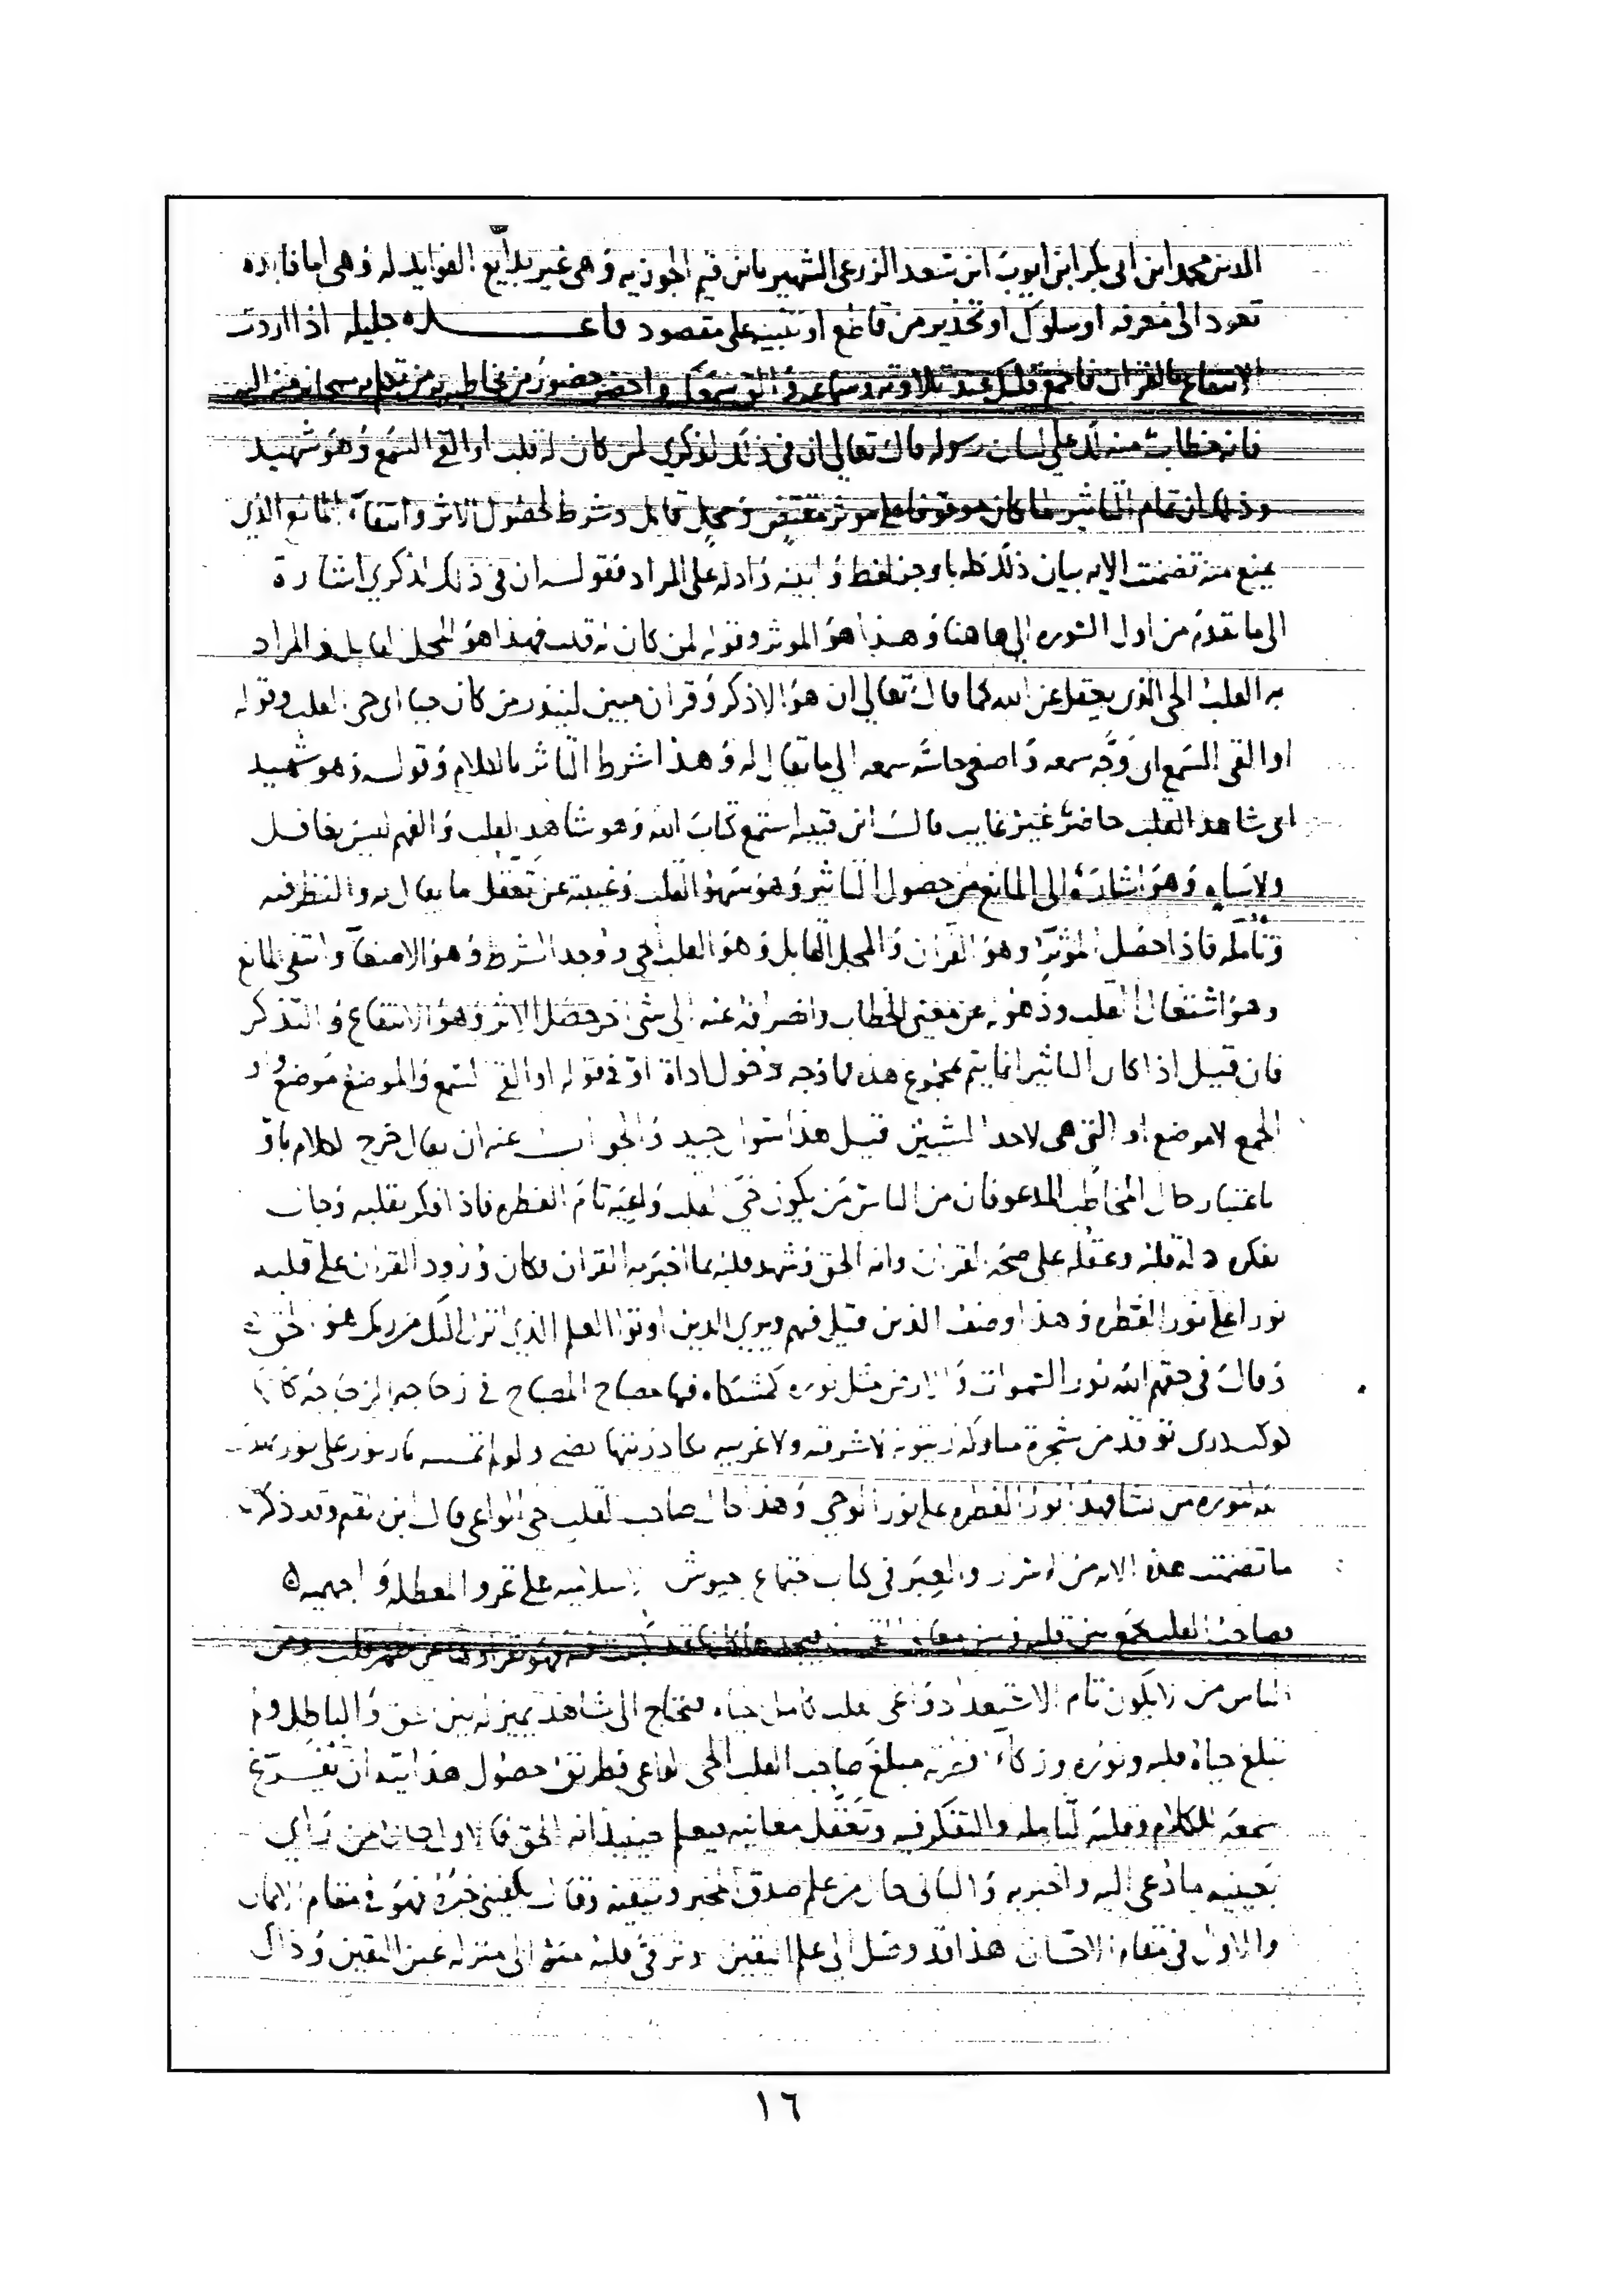 الدين محمد ابن ابى بكر ابن ايوب ابن سعد الزرعى الشهير بابن قيم الجوزيه وهى غير بدايع الفوايد له وهى اما فايده
تعود الى معرفه او سلوك او تحذير من قاطع او تنبيه على مقصود قاعـــــده جليله اذا اردت
الانتفاع بالقران فاجمع قلبك عند تلاوته وسماعه والق سمعك واحضر حضور من يخاطبه به من تكلم به سبحانه منه اليه
فانه خطاب منه لك على لسان رسوله قال تعالى ان فى ذلك لذكري لمن كان له قلب او القى السمع وهو شهيد
وذلك ان تمام التاثير لما كان موقوفا على موثر مقتض ومحل قابل وشرط لحصول الاثر وانتفآء المانع الذي
يمنع منه تضمنت الايه بيان ذلك كله باوجز لفظ وابينه وادله على المراد فقوله ان فى ذلك لذكري اشارة
الى ما تقدم من اول السوره الى هاهنا وهذا هو الموثر وقوله لمن كان له قلب فهذا هو المحل القابل والمراد
به القلب الحى الذى يعقل عن الله كما قال تعالى ان هو الا ذكر وقران مبين لينذر من كان حيا اى حى القلب وقوله
او القى السمع اى وجه سمعه واصغى حاسة سمعه الى ما يقال له وهذا شرط التاثر بالكلام وقوله وهو شهيد
اى شاهد القلب حاضر غير غايب قال ابن قتيبه استمع كتاب الله وهو شاهد القلب والفهم ليس بغافل
ولا ساه وهو اشارة الى المانع من حصول التاثير وهو سهو القلب وغيبته عن تعقل ما يقال له والنظر فيه
وتامله فاذا حصل الموثر وهو القران والمحل القابل وهو القلب الحى ووجد الشرط وهو الاصغآ وانتفى المانع
وهو اشتغال القلب وذهوله عن معنى الخطاب وانصرافه عنه الى شى اخر حصل الاثر وهو الانتفاع والتذكر
فان قيل اذا كان التاثير انما يتم بمجموع هذه فما وجه دخول اداة او فى قوله او القى السمع والموضع موضع واو
الجمع لا موضع او التى هى لاحد الشيئين قيل هذا سوال جيد والجواب عنه ان يقال خرج الكلام باو
باعتبار حال المخاطب المدعو فان من الناس من يكون حى القلب واعيه تام الفطره فاذا فكر بقلبه وجال
بفكره دله قلبه وعقله على صحة القران وانه الحق وشهد قلبه بما اخبر به القران فكان ورود القران على قلبه
نورا على نور الفطره وهذا وصف الذين قيل فيهم ويرى الذين اوتوا العلم الذي انزل اليك من ربك هو الحق
وقال فى حقهم الله نور السموات والارض مثل نوره كمشكاه فيها مصباح المصباح في زجاجه الزجاجة كانها
كوكب درى توقد من شجرة مباركه زيتونه لا شرقيه ولا غربيه يكاد زيتها يضى ولو لم تمسسه نار نور على نور يهدى
الله لنوره من يشا فهذا نور الفطره على نور الوحى وهذا حال صاحب القلب حى الواعى قال ابن القيم وقد ذكرت
ما تضمنت هذه الايه من الاسرار والعبر فى كتاب اجتماع جيوش الاسلاميه على غزو المعطله والجهميه
فصاحب القلب يجمع بين قلبه وبين معانى القران فيجدها كانها قد كتبت فيه فهو يقراوها عن ظهر قلب ومن
الناس من لا يكون تام الاستعداد واعى القلب كامل حياه فيحتاج الى شاهد يميز له بين الحق والباطل ولم
تبلغ حياة قلبه ونوره وزكآء فطرته مبلغ صاحب القلب الحى الواعى فطريق حصول هدايته ان يفرغ
سمعه للكلام وقلبه لتامله والتفكر فيه وتعقل معانيه فيعلم حينيذ انه الحق فالاول حال من راي
بعينيه ما دعى اليه واخبر به والثانى حال من علم صدق المخبر وتيقنه وقال يكفينى خبره فهو فى مقام الايمان
والاول فى مقام الاحسان هذا قد وصل الى علم اليقين وترقى قلبه منه الى منزله عين اليقين وذاك
١٦